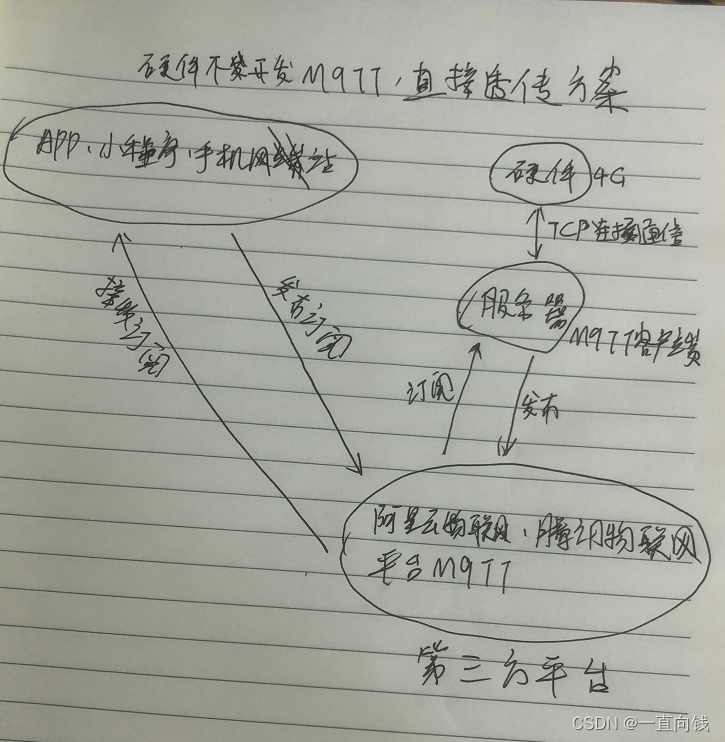 硬件不需开发MQTT,直接透传方案
APP、小程序、手机网站
硬件 4G
TCP连接通信
服务器
MQTT客户端
接收订阅
发布订阅
订阅
发布
阿里云物联网、腾讯物联网
平台MQTT
第三方平台
CSDN @一直向钱